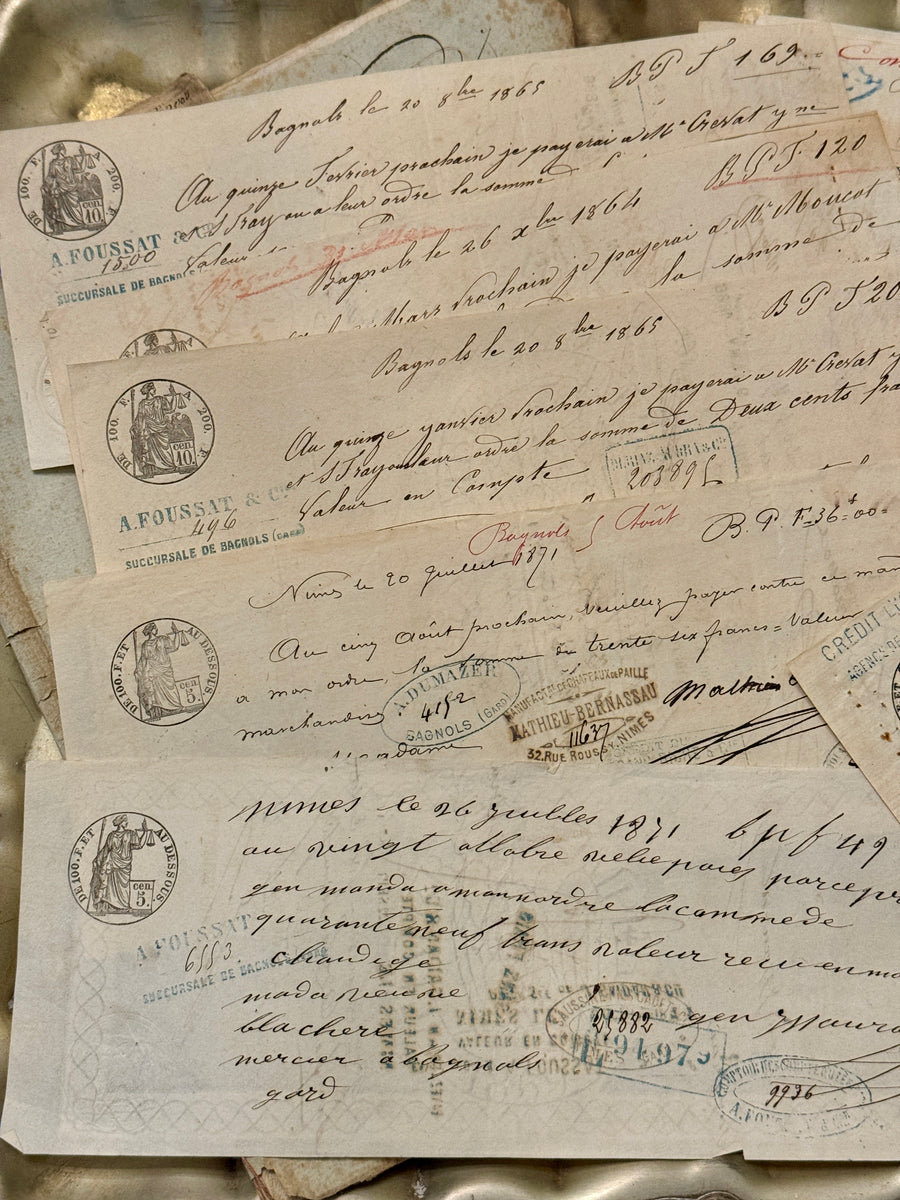 Bagnols le 20 8bre 1865 BPF 169=
Au quinze Fevrier prochain je payerai a Mr Crevat y ne
et S Fray ou a leur ordre la somme
Valeur
DE 100. F. A 200. F.
cen 10.
A. FOUSSAT & Cie
1500
SUCCURSALE DE BAGNOLS
Bagnols le 26 xbre 1864 BPF. 120
Mars prochain je payerai a Mr Moucot
la somme de
Bagnols le 20 8bre 1865 BPF 20
Au quinze janvier prochain je payerai a Mr Crevat y
et S Fray ou a leur ordre la somme de Deux cents fra
Valeur en Compte
203895
DE 100. F. A 200. F.
cen 10.
A. FOUSSAT & Cie
496
SUCCURSALE DE BAGNOLS (GARD)
Bagnols 5 Août
Nimes le 20 Juillet 1871 B.P. F=36=00=
Au cinq Août prochain, veuillez payer contre ce man
a mon ordre, la somme de trente six francs= Valeur
marchandise
Madame
DE 100. F. ET AU DESSOUS.
cen 5.
A. DUMAZER
4152
BAGNOLS (GARD)
MANUFACTRE DE CHAPEAUX DE PAILLE
MATHIEU-BERNASSAU
11637
32. RUE ROUSSY. NIMES
Mathieu
CREDIT LY
AGENCE DE
nimes le 26 juilles 1871 b p f 49
au vingt ottobre
gen manda a mon ordre la comme de
quarante neuf frans valeur recu en ma
chandige
mada
blachere
mercier a bagnols
gard
DE 100. F. ET AU DESSOUS
cen 5.
A. FOUSSAT
6553
SUCCURSALE DE BAGNOLS
VALEUR EN COMPTE
NIMES
23882
9936